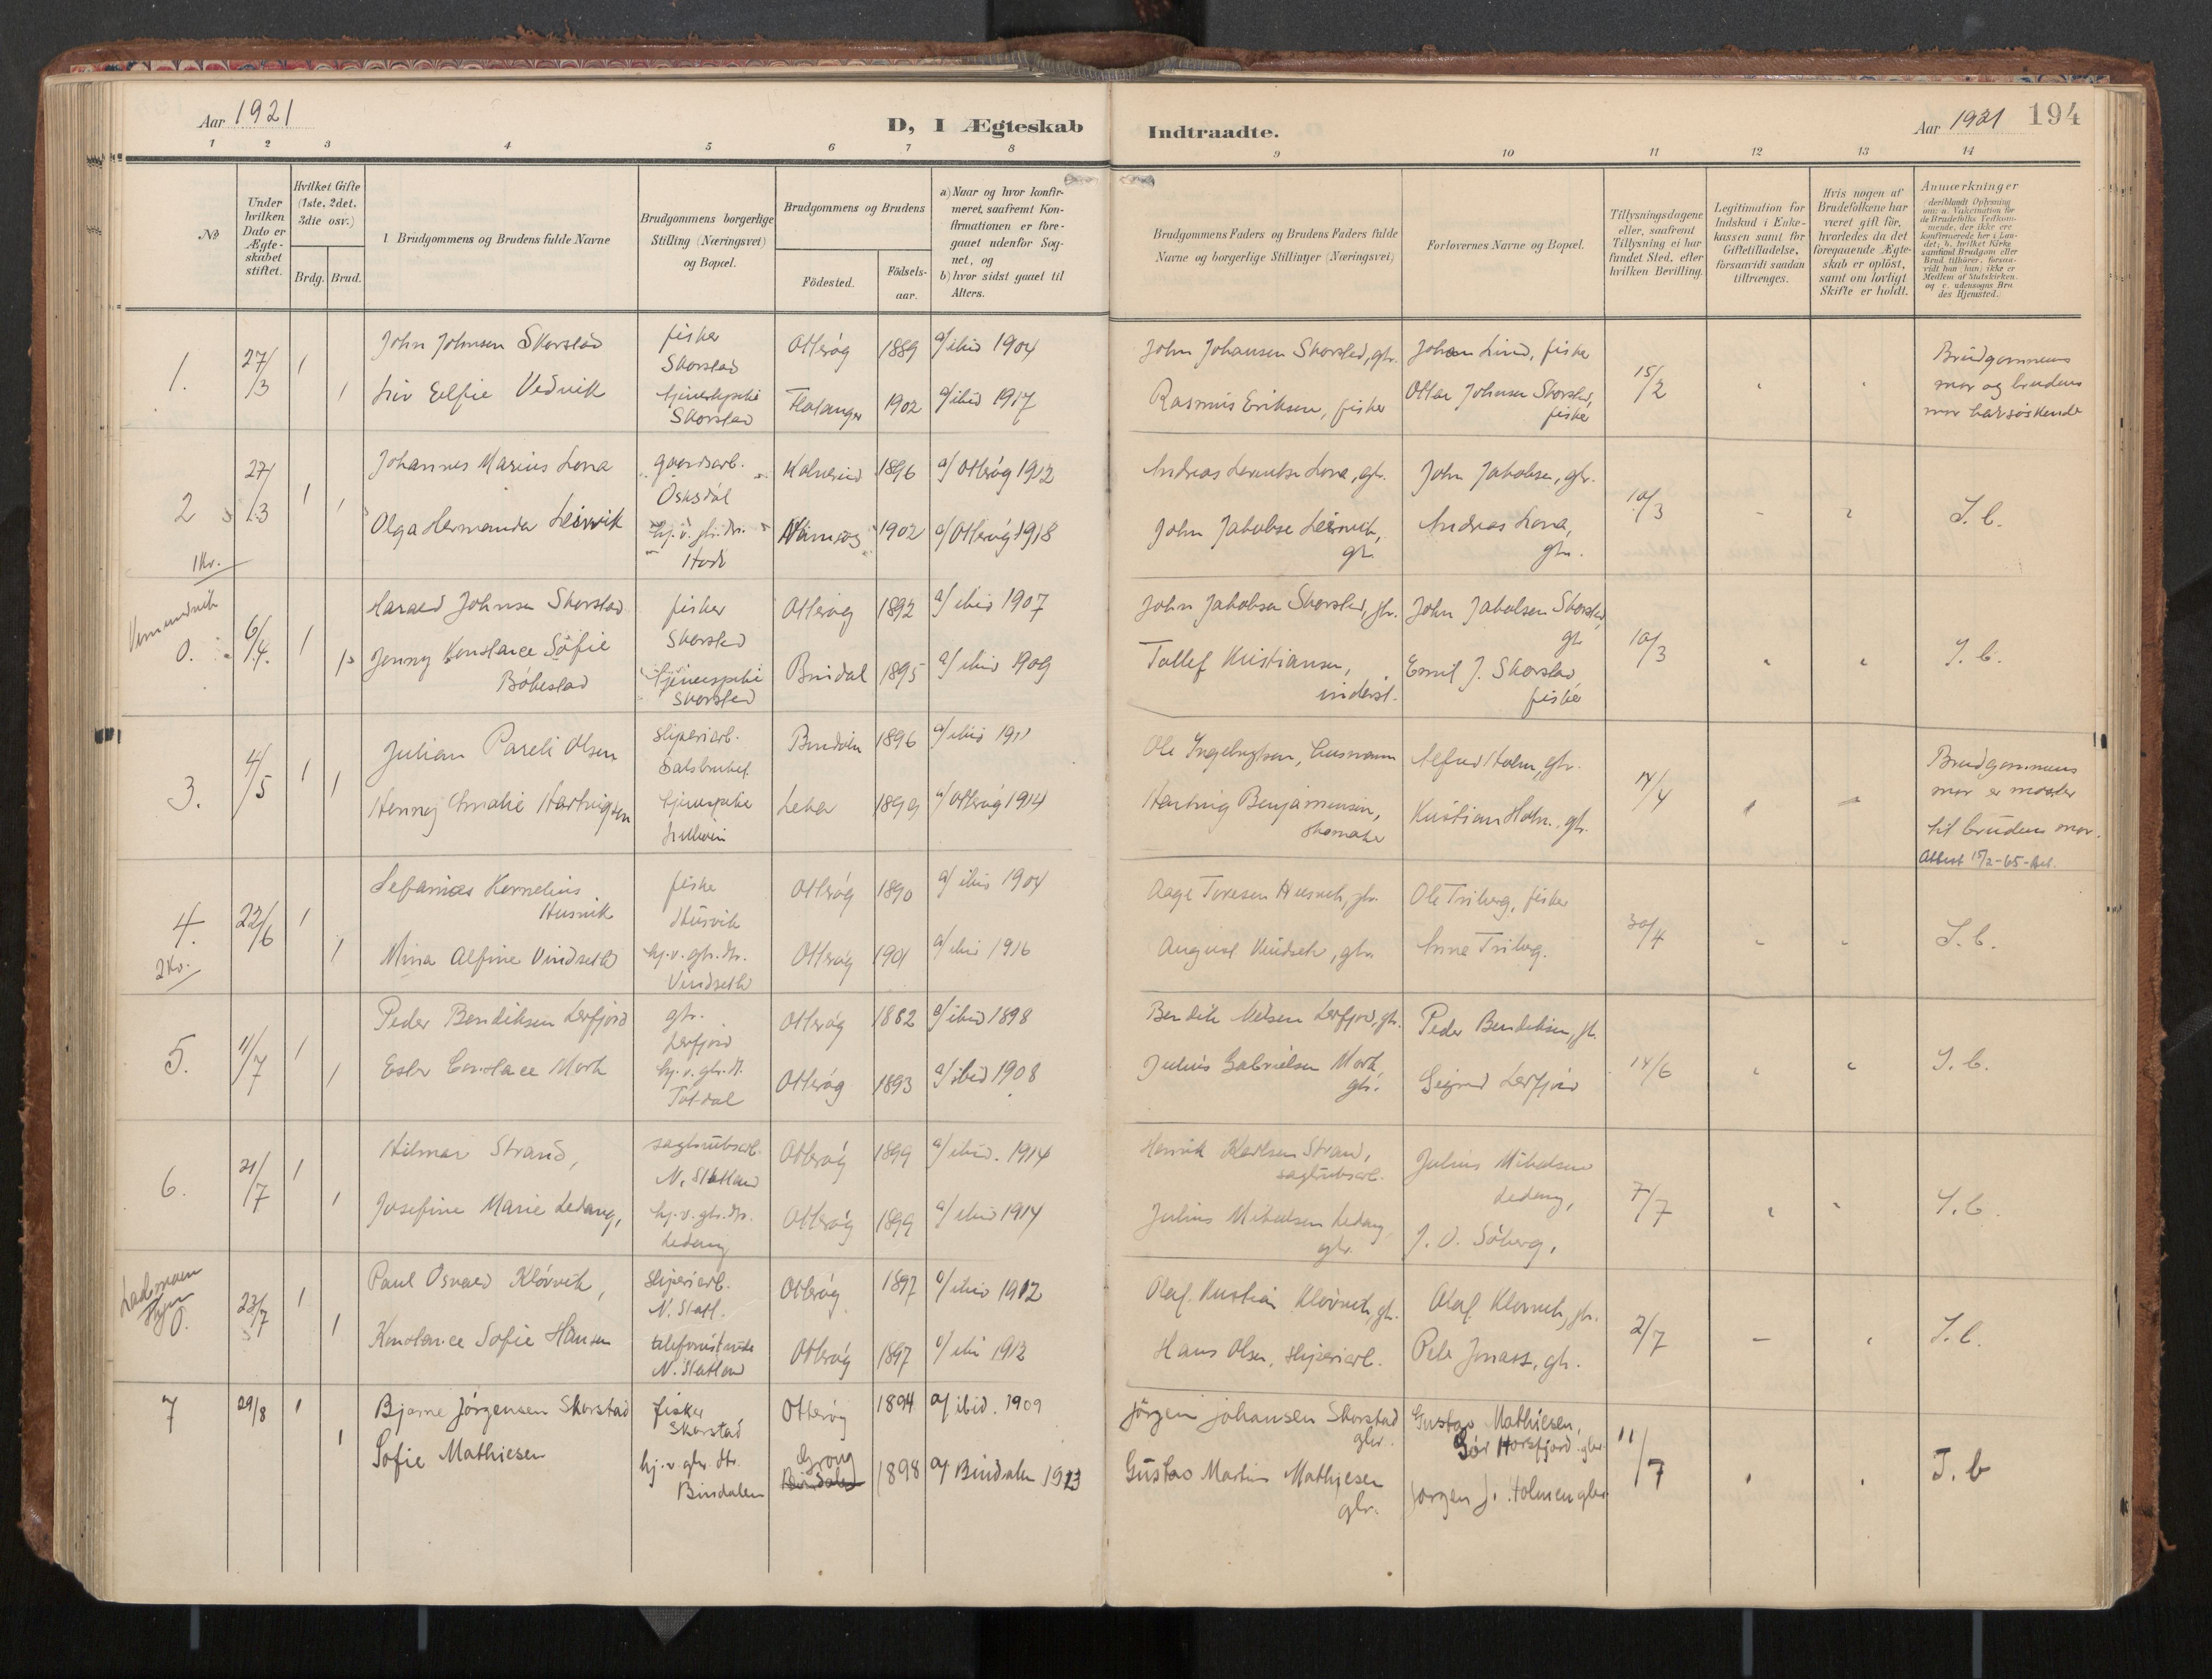 Aar 1921
D, I Ægteskab
Indtraadte.
Aar 1921
194
1 2 3 4 5 6 7 8 9 10 11 12 13 14
No
Under hvilken Dato er Ægteskabet stiftet.
Hvilket Gifte (1ste, 2det, 3die osv.)
Brdg. Brud.
Brudgommens og Brudens fulde Navne
Brudgommens borgerlige Stilling (Næringsvei) og Bopæl.
Brudgommens og Brudens
Födested.
Födselsaar.
a) Naar og hvor konfirmeret, saafremt Konfirmationen er foregaaet udenfor Sognet, og
b) hvor sidst gaaet til Alters.
Brudgommens Faders og Brudens Faders fulde Navne og borgerlige Stillinger (Næringsvei)
Forlovernes Navne og Bopæl.
Tillysningsdagene eller, saafremt Tillysning ei har fundet Sted, efter hvilken Bevilling.
Legitimation for Indskud i Enkekassen samt for Giftetilladelse, forsaavidt saadan tiltrænges.
Hvis nogen af Brudefolkene har været gift för, hvorledes da det foregaaende Ægteskab er oplöst, samt om lovligt Skifte er holdt.
Anmærkninger (deriblandt Oplysning om: a. Vakcination for de Brudefolks Vedkommende, der ikke ere konfirmerede her i Landet; b. hvilket Kirkesamfund Brudgom eller Brud tilhörer, forsaavidt han (hun) ikke er Medlem af Statskirken, og c. udensogns Brudes Hjemsted.
1. 27/3 1 John Johnsen Skorstad fisker Skorstad Otterøy 1889 a/ ibid 1904 John Johansen Skorstad, gbr. Johan Lind, fisker 15/2 Brudgommens mor og brudens mor har søskende
1 Vedvik tjenestepike Skorstad Flatanger 1902 a/ ibid 1917 Rasmus Eriksen, fisker Ottar Johnsen Skorstad, fisker
2 27/3 1 Johannes Marius Lona gaardsarb. Kolvereid 1896 a/ Otterøy 1912 Andreas Lona, gbr. John Jakobsen, gbr. 10/3 I. b.
1 Olga Hermanda Leirvik hj. v. gbr. dtr. 1902 a/ Otterøy 1918 John Jakobsen Leirvik, gbr. Andreas Lona, gbr.
1 Kr.
0. 6/4. 1 Harald Johnsen Skorstad fisker Skorstad Otterøy 1892 a/ ibid 1907 John Jakobsen Skorstad, gbr. John Jakobsen Skorstad, gbr. 10/3 I. b.
1 Jenny Konstance Sofie Bökestad tjenestepike Skorstad Bindal 1895 a/ ibid 1909 Tollef Kristiansen, inderst. Emil J. Skorstad fisker
3. 4/5 1 Julian Pareli Olsen sliperiarb. Salsbruket Bindalen 1896 a/ ibid 1911 Ole Ingebrigtsen, husmann Alfred Holm, gbr. 14/4 Brudgommens mor er moster til brudens mor.
1 Henny Amalie Hartvigsen tjenestepike Leka 1899 a/ Otterøy 1914 Hartvig Benjaminsen, skomaker Kristian Holm, gbr.
Attest 15/2-65-
4. 22/6 1 Kornelius Husvik fisker Husvik Otterøy 1890 a/ ibid 1904 Aage Toresen Husvik, gbr. Ole Triberg, fisker 30/4 I. b.
2 Kr.
1 Mina Alfine Vindseth hj. v. gbr. dtr. Vindseth Otterøy 1901 a/ ibid 1916 August Vindseth, gbr. Anne Triberg.
5. 11/7 1 Peder Bendiksen Lerfjord gbr. Lerfjord Otterøy 1882 a/ ibid 1898 Bendik Nilsen Lerfjord, gbr. Peder Bendiksen, gbr. 14/6 I. b.
1 Ester Constance Mork hj. v. gbr. dt. Totdal Otterøy 1893 a/ ibid 1908 Julius Gabrielsen Mork, gbr. Sigurd Lerfjord
6. 21/7 1 Hilmar Strand, sagbruksarb. N. Statland Otterøy 1899 a/ ibid. 1914 Henrik Karlsen Strand, sagbruksarb. Julius Mikalsen Ledang, 7/7 I. b.
1 Josefine Marie Ledang, hj. v. gbr. dtr. Ledang Otterøy 1899 a/ ibid 1914 Julius Mikalsen Ledang gbr. J. O. Söberg,
0. 23/7 1 Paul Osvald Klövvik, sliperiarb. N. Statl. Otterøy 1897 a/ ibid 1912 Olaf Kristian Klövvik, gbr. Olaf Klövvik, gbr. 2/7 I. b.
1 Konstance Sofie Hansen N. Statland Otterøy 1897 a/ ibid 1912 Hans Olsen, sliperiarb. Peter Jonass, gbr.
7 29/8 1 Bjarne Jörgensen Skorstad fisker Skorstad Otterøy 1894 a/ ibid. 1909 Jörgen Johansen Skorstad gbr. Gustav Mathiesen, Sör Horsfjord gbr. 11/7 I. b
1 Sofie Mathiesen hj. v. gbr. dtr. Bindalen Grong Bindalen 1898 a/ Bindalen 1913 Gustav Martin Mathiesen gbr. Jörgen J. Holmen gbr